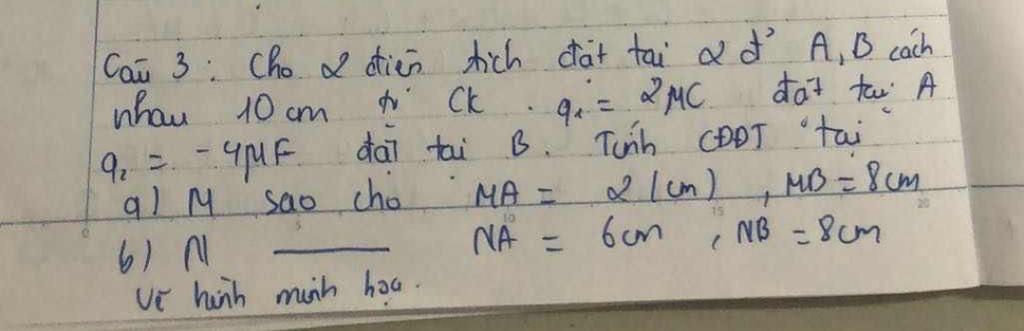 Câu 3 : Cho 2 điện tích đặt tại 2 đ' A, B cách
nhau 10 cm tr' CK . q₁ = 2μC đặt tại A
q₂ = -4μF đặt tại B. Tính CĐĐT tại
a) M sao cho MA = 2 (cm) , MB = 8cm
b) N ——— NA = 6cm , NB = 8cm
Vẽ hình minh họa.